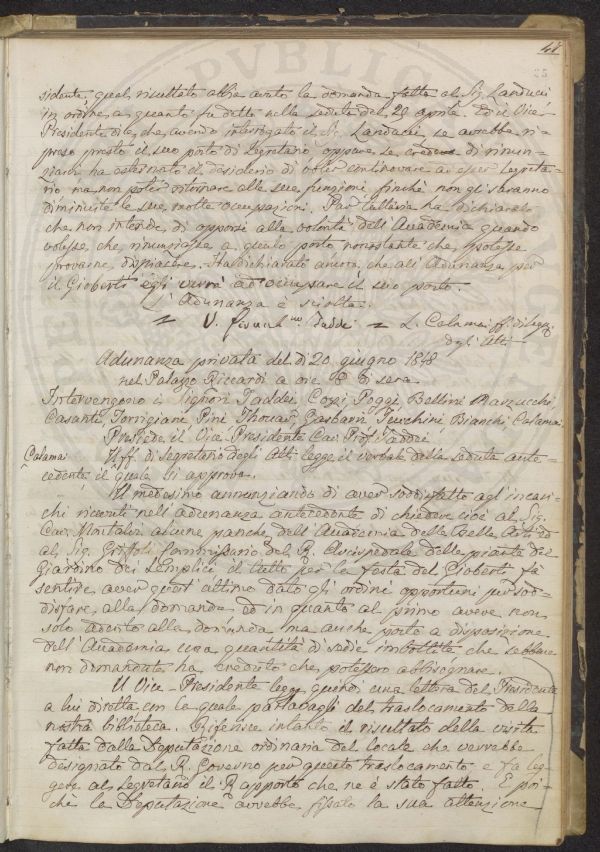 47
sidente, qual risultato abbia avuto la domanda fatta al Sig. Landucci
in ordine a quanto fu detto nella seduta del 29 aprile. Ed il Vice-
Presidente dice, che avendo interrogato il Sig. Landucci, se avrebbe ri-
preso presto il suo posto di Segretario oppure se credeva di rinun-
ziarci ha esternato il desiderio di voler continovare ad esser Segreta-
rio ma non poter ritornare alle sue funzioni finchè non gli saranno
diminuite le sue molte occupazioni. Pur tuttavia ha dichiarato
che non intende di opporsi alla volontà dell'Accademia quando
volesse che rinunziasse a questo posto nonostante che potesse
provarne dispiacere. Ha dichiarato ancora, che all'Adunanza per
il Gioberti egli verrà ad occupare il suo posto.
L'Adunanza è sciolta.
V. Taddei = L. Calamai ff. di Segr.
degli Atti
Adunanza privata del dì 20 giugno 1848
nel Palazzo Riccardi a ore 8 di sera.
Intervengono i Signori Taddei Cozzi Poggi Bellini Marzucchi,
Casanti, Torrigiani Pini Thouar, Gasbarri Peucchini Bianchi Calamai
Presiede il Vice Presidente Cav. Prof. Taddei
Calamai
Il ff. di Segretario degli Atti legge il verbale della seduta ante-
cedente il quale si approva.
Il medesimo annunziando di aver soddisfatto agl'incari-
chi ricevuti nell'adunanza antecedente di chiedere cioè al Sig.
Cav. Montalvi alcune panche dell'Accademia delle Belle Arti ed
al Sig. Griffoli Commissario del R. Arcispedale delle piante del
Giardino dei Semplici il tutto per la festa del Gioberti fà
sentire aver quest'ultimo dato gli ordini opportuni per sod-
disfare alla domanda ed in quanto al primo avere non
solo aderito alla domanda ma anche posto a disposizione
dell'Accademia una quantità di sedie imbottite che sebbene
non dimandate ha creduto che potessero abbisognare.
Il Vice-Presidente legge quindi una lettera del Presidente
a lui diretta con la quale parlavagli del traslocamento della
nostra biblioteca. Riferisce intanto il risultato della visita
fatta dalla Deputazione ordinaria del locale che verrebbe
designato dal R. Governo per questo traslocamento e fa leg-
gere al Segretario il Rapporto che ne è stato fatto. E poi-
chè la Deputazione avrebbe fissato la sua attenzione